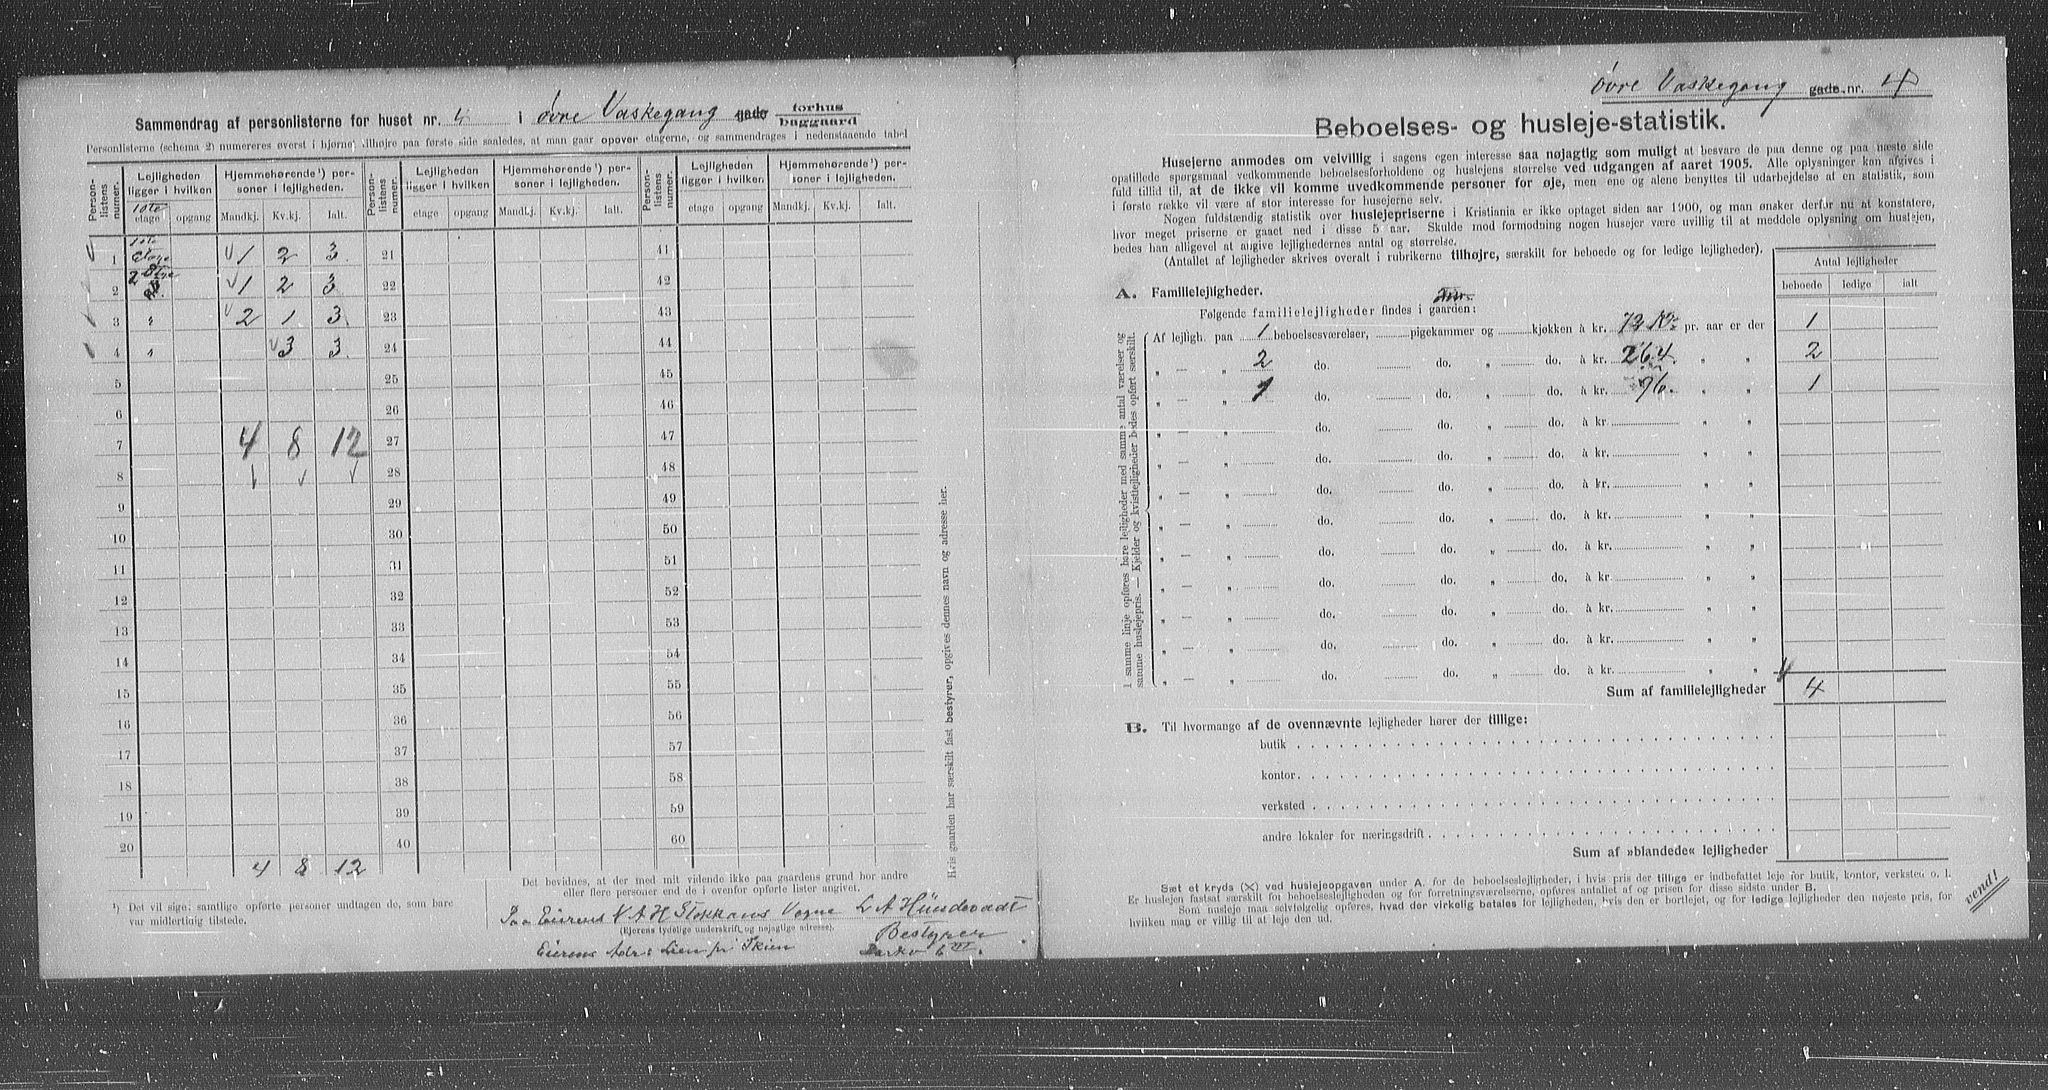 Sammendrag af personlisterne for huset nr. 4 i Øvre Vaskegang gade forhus
baggaard
Personlisterne (schema 2) numereres øverst i hjørnet tilhøjre paa første side saaledes, at man gaar opover etagerne, og sammendrages i nedenstaaende tabel
Person-listens numer.
Lejligheden ligger i hvilken
Hjemmehørende¹) personer i lejligheden.
Person-listens numer.
Lejligheden ligger i hvilken
Hjemmehørende¹) personer i lejligheden.
Person-listens numer.
Lejligheden ligger i hvilken
Hjemmehørende¹) personer i lejligheden.
etage opgang Mandkj. Kv.kj. Ialt. etage opgang Mandkj. Kv.kj. Ialt. etage opgang Mandkj. Kv.kj. Ialt.
1 1ste Etage 1 2 3 21 41
2 2 Etge 1 2 3 22 42
3 " 2 1 3 23 43
4 " 3 3 24 44
5 25 45
6 26 46
7 4 8 12 27 47
8 28 48
9 29 49
10 30 50
11 31 51
12 32 52
13 33 53
14 34 54
15 35 55
16 36 56
17 37 57
18 38 58
19 39 59
20 40 60
4 8 12
¹) Det vil sige: samtlige opførte personer undtagen de, som bare
var midlertidig tilstede.
Det bevidnes, at der med mit vidende ikke paa gaardens grund bor andre
eller flere personer end de i ovenfor opførte lister angivet.
Paa Eierens N A H Stokkans Vegne L A Hündevadt
(Ejerens tydelige underskrift og nøjagtige adresse).
Bestyrer
Eierens Adr: Lien pr Skien
Hvis gaarden har særskilt fast bestyrer, opgives dennes navn og adresse her.
Øvre Vaskegang gade nr. 4
Beboelses- og husleje-statistik.
Husejerne anmodes om velvillig i sagens egen interesse saa nøjagtig som muligt at besvare de paa denne og paa næste side
opstillede spørgsmaal vedkommende beboelsesforholdene og huslejens størrelse ved udgangen af aaret 1905. Alle oplysninger kan afgives i
fuld tillid til, at de ikke vil komme uvedkommende personer for øje, men ene og alene benyttes til udarbejdelse af en statistik, som
i første række vil være af stor interesse for husejerne selv.
Nogen fuldstændig statistik over huslejepriserne i Kristiania er ikke optaget siden aar 1900, og man ønsker derfor nu at konstatere,
hvor meget priserne er gaaet ned i disse 5 aar. Skulde mod formodning nogen husejer være uvillig til at meddele oplysning om huslejen,
bedes han alligevel at angive lejlighedernes antal og størrelse.
(Antallet af lejligheder skrives overalt i rubrikerne tilhøjre, særskilt for beboede og for ledige lejligheder).
Antal lejligheder
beboede ledige ialt
A. Familielejligheder.
Følgende familielejligheder findes i gaarden:
I samme linje opføres bare lejligheder med samme antal værelser og
samme huslejepris. — Kjelder og kvistlejligheder bedes opført særskilt.
Af lejligh. paa 1 beboelsesværelser, pigekammer og kjøkken à kr. pr. aar er der 1
" — " 2 do. do. " do. à kr. 264 " " 2
" — " 1 do. do. " do. à kr. 96. " " 1
" — " do. do. " do. à kr. " "
" — " do. do. " do. à kr. " "
" — " do. do. " do. à kr. " "
" — " do. do. " do. à kr. " "
" — " do. do. " do. à kr. " "
" — " do. do. " do. à kr. " "
" — " do. do. " do. à kr. " "
" — " do. do. " do. à kr. " "
" — " do. do. " do. à kr. " "
Sum af familielejligheder 4
B. Til hvormange af de ovennævnte lejligheder hører der tillige:
butik
kontor
verksted
andre lokaler for næringsdrift
Sum af »blandede« lejligheder
Sæt et kryds (X) ved huslejeopgaven under A. for de beboelseslejligheder, i hvis pris der tillige er indbefattet leje for butik, kontor, verksted o. l.
Er huslejen fastsat særskilt for beboelseslejligheden og for forretningsværelserne, opføres antallet af og prisen for disse sidste under B.
Som husleje maa selvfølgelig opføres, hvad der virkelig betales for lejligheden, hvis den er bortlejet, og for ledige lejligheder den nøjeste pris, for
hvilken man er villig til at leje den ud.
vend!